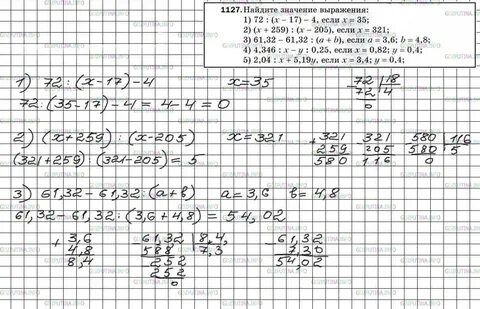 1127. Найдите значение выражения:
1) 72 : (x − 17) − 4, если x = 35;
2) (x + 259) : (x − 205), если x = 321;
3) 61,32 − 61,32 : (a + b), если a = 3,6; b = 4,8;
4) 4,346 : x − y : 0,25, если x = 0,82; y = 0,4;
5) 2,04 : x + 5,19y, если x = 3,4; y = 0,4.
1) 72 : (x-17)-4 x=35
72 : (35-17)-4 = 4-4 = 0
- 72 | 18
72 | 4
0
2) (x+259) : (x-205) x=321
(321+259) : (321-205) = 5
+ 321
259
580
- 321
205
116
- 580 | 116
580 | 5
0
3) 61,32-61,32 : (a+b) a=3,6 b=4,8
61,32-61,32 : (3,6+4,8) = 54,02
+ 3,6
4,8
8,4
- 61,32 | 8,4
588 | 7,3
- 252
252
0
- 61,32
7,30
54,02
GDZPUTINA.INFO